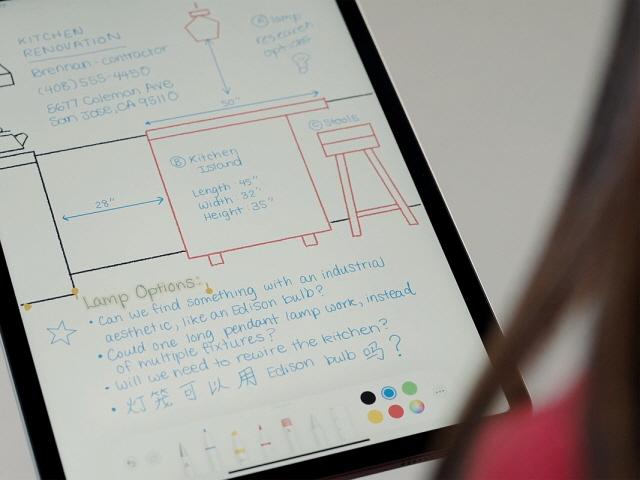 KITCHEN
RENOVATION
Brennan - contractor
(408) 555-4450
5677 Coleman Ave
San Jose, CA 95110
A lamp
research
options
50"
28"
B Kitchen
Island
Length 45"
Width 32"
Height 35"
C Stools
Lamp Options:
• Can we find something with an industrial
aesthetic, like an Edison bulb?
• Could one long pendant lamp work, instead
of multiple fixtures?
• Will we need to rewire the kitchen?
• 灯笼可以用 Edison bulb 吗?